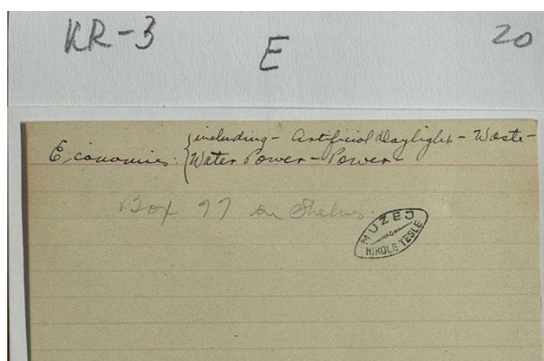 KR-3 E 20
Economies: { including - Artificial Daylight - Waste -
Water Power - Power -
Box 97 on Shelves.
MUZEJ
NIKOLE TESLE